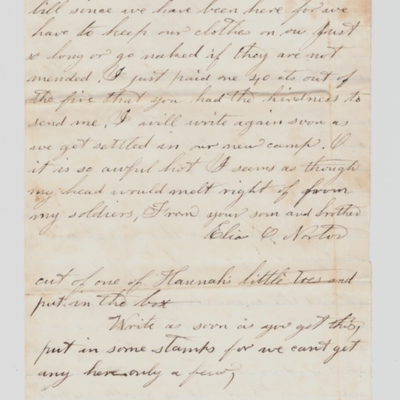 bill sinae we have been here for we
have to keep our clothes on our just
x long or go naked if they are not
mended. I just paid one 40 cts out of
the five that you had the kindness to
send me. I will write again soon as
we get settled in our new camp. O
it is so awful hot I seems as though
my head would melt right of from
my soldiers, From your son and brother
Elia C. Norton
cut of one of Hannah's little toes and
put in the box
Write as soon as you get this,
put in some stamps for we cant get
any here only a few,